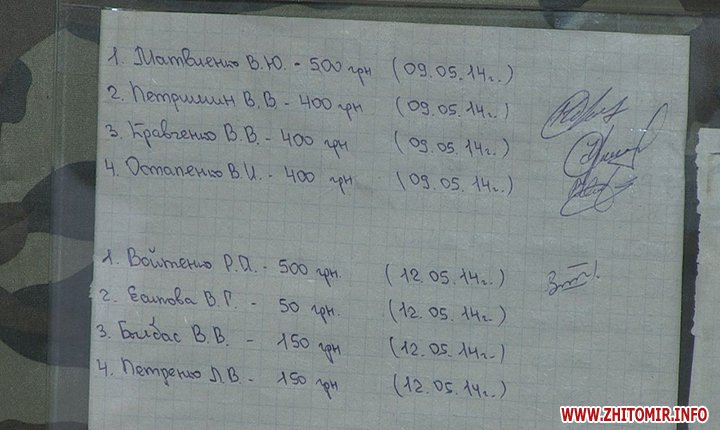 1. Матвиенко В.Ю. - 500 грн (09.05.14г.)
2. Петришин В.В - 400 грн (09.05.14г.)
3. Кравченко В.В. - 400 грн (09.05.14г.)
4. Остапенко В.И. - 400 грн (09.05.14г.)
1. Войтенко Р.П. - 500 грн. (12.05.14г.)
2. Есипова В.Г. - 50 грн. (12.05.14г.)
3. Былбас В.В. - 150 грн (12.05.14г.)
4. Петренко Л.В. - 150 грн (12.05.14г.)
WWW.ZHITOMIR.INFO